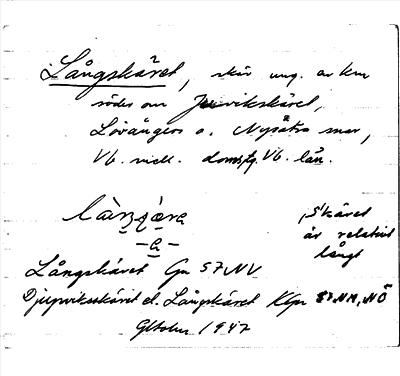 Långskäret, skär ung. av km
söder om Juvikskäret,
Lövångers o. Nysätra snar,
Vb. mell. doms. Vb. län.
Skäret
är relativt
långt
Långskäret Gn 57 NV
Djupviksskäret el. Långskäret Kgn 57 NV, NÖ
Oktober 1947